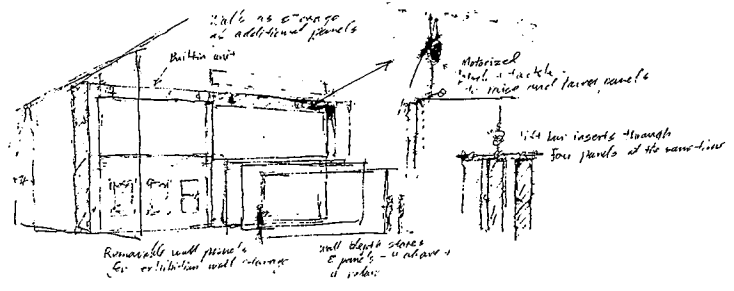 as storage
additional panels
Built-in unit
Motorized
to raise and lower panels
lift bar inserts through
four panels at the same time
Removable wall panels
for exhibition wall storage
wall depth stores
8 panels - 4 above +
4 below